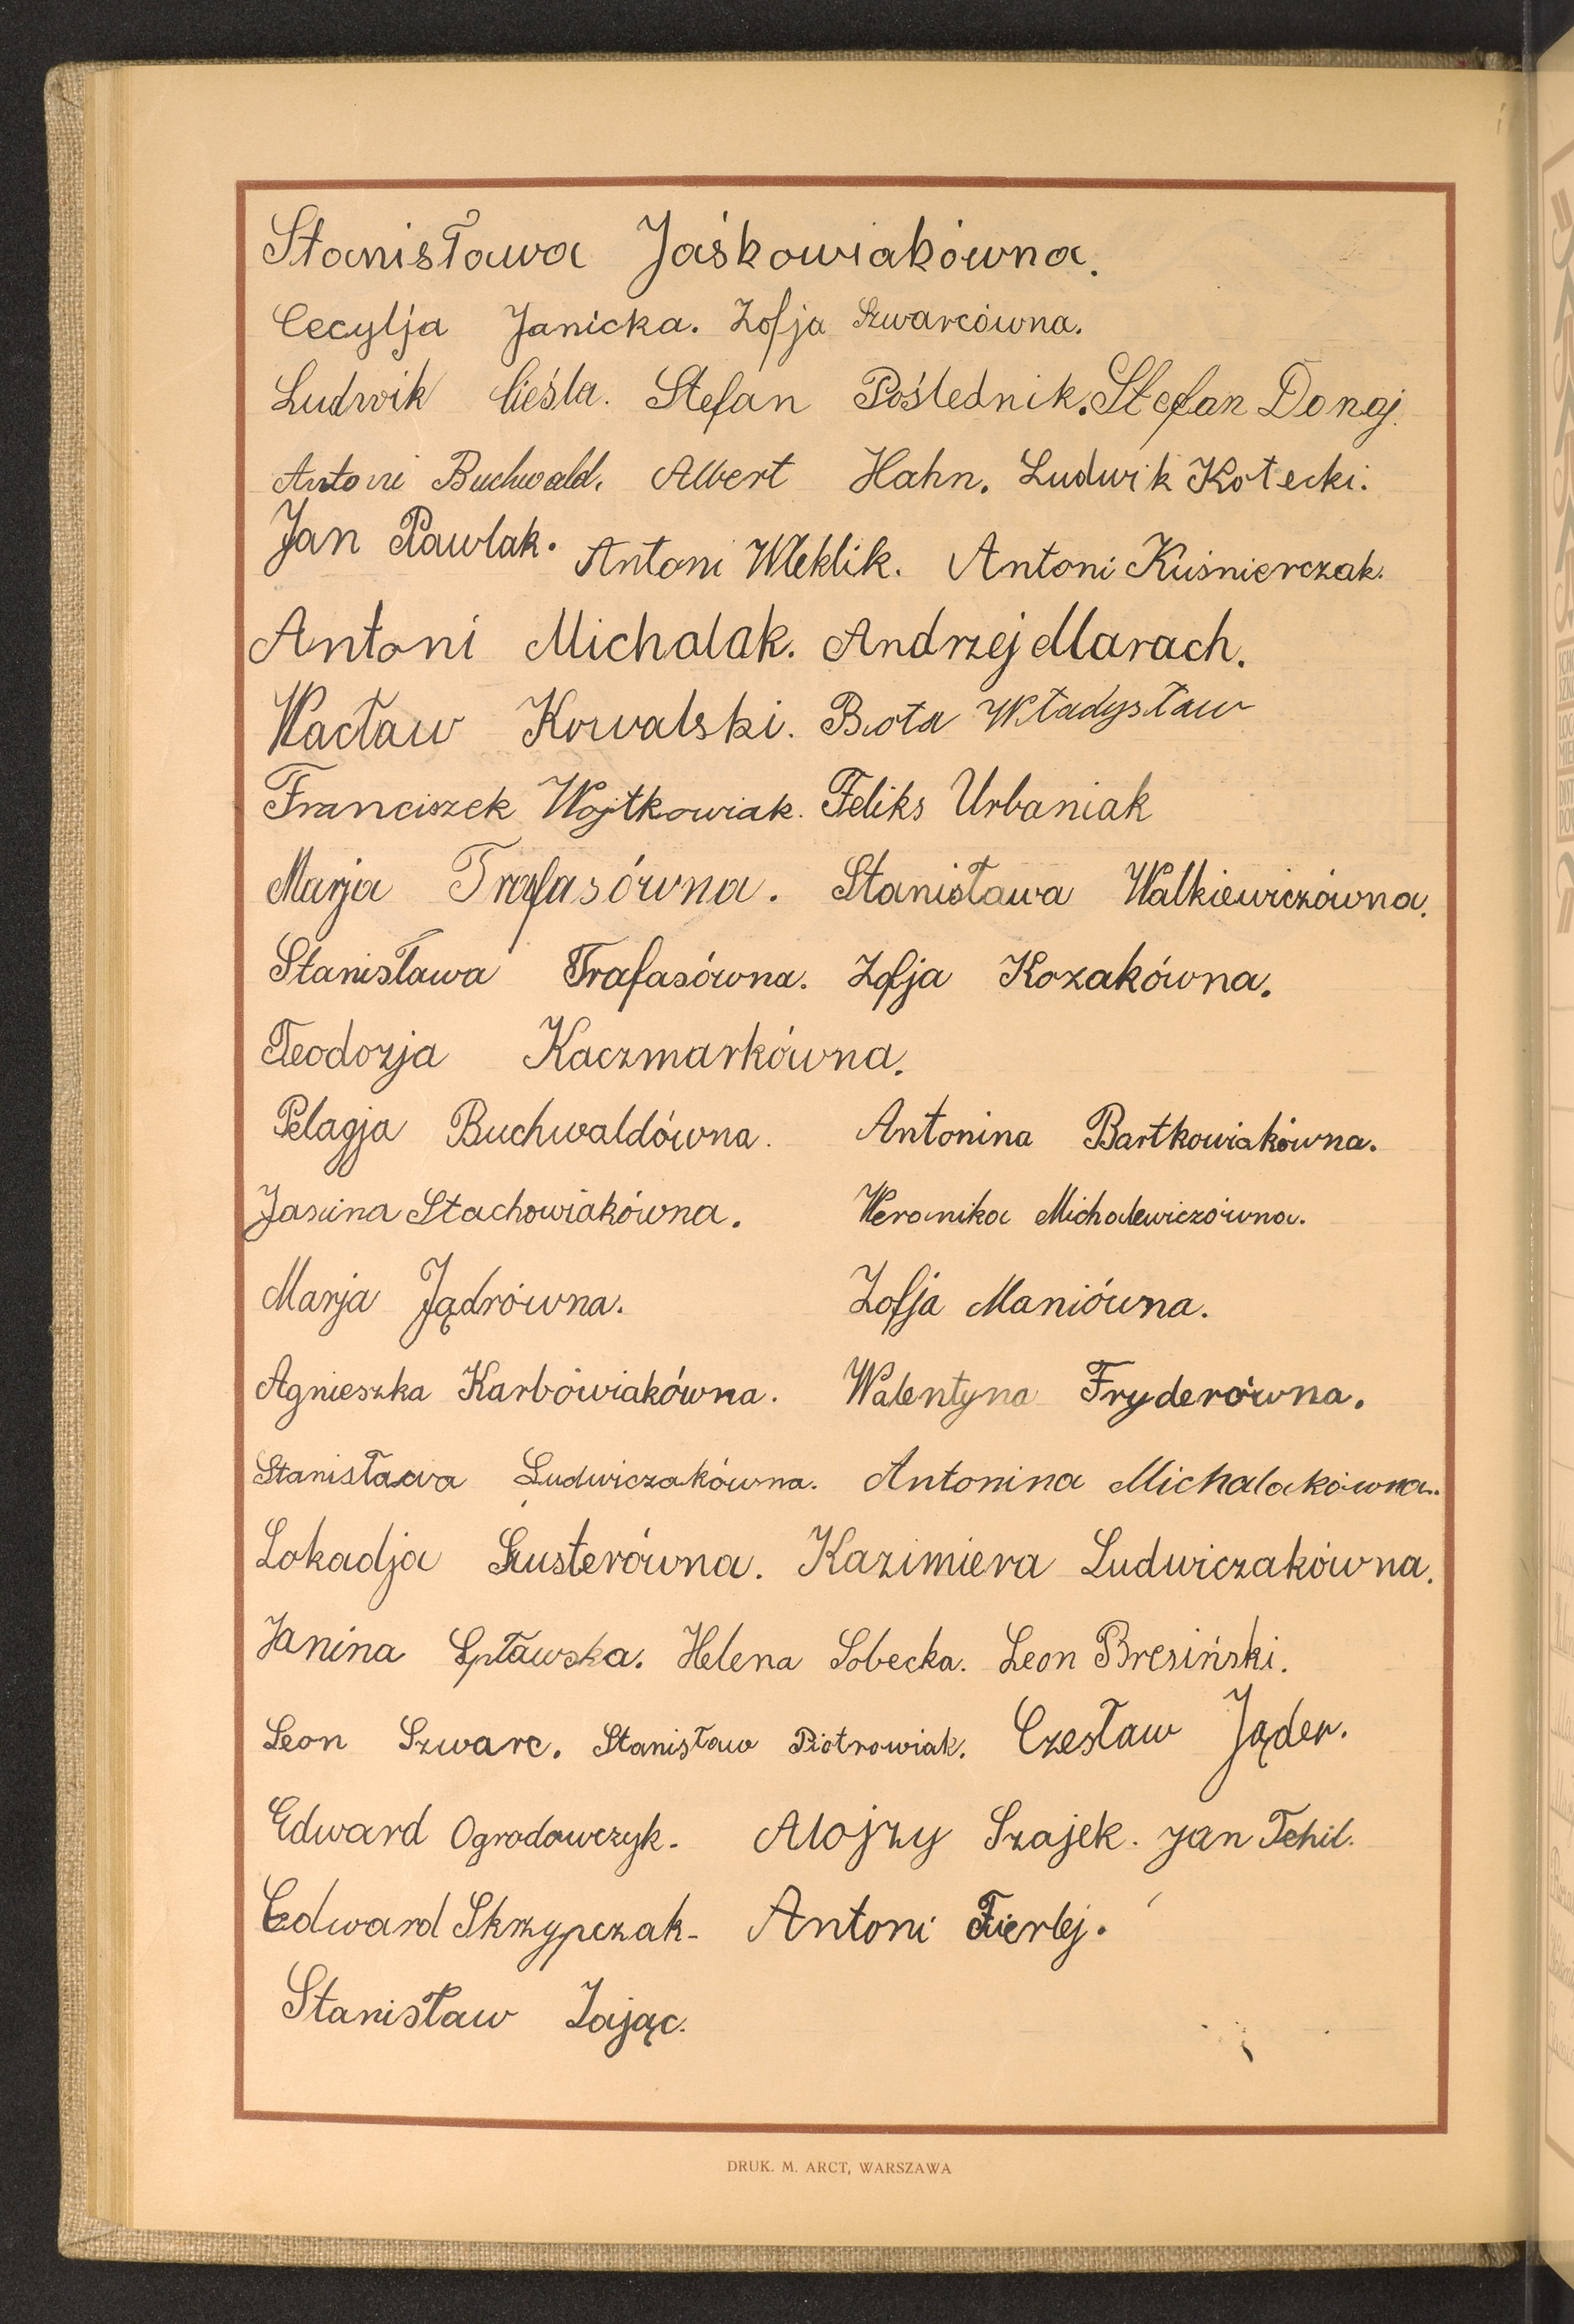 Stanisława Jaśkowiakówna.
Cecylja Janicka. Zofja Szwarcówna.
Ludwik Cieśla. Stefan Poślednik. Stefan Donaj.
Antoni Buchwald. Albert Hahn. Ludwik Kotecki.
Jan Pawlak. Antoni Wleklik. Antoni Kuśnierczak.
Antoni Michalak. Andrzej Marach.
Wacław Kowalski. Biota Władysław
Franciszek Wojtkowiak. Feliks Urbaniak
Marja Trafasówna. Stanisława Walkiewiczówna.
Stanisława Trafasówna. Zofja Kozakówna.
Teodozja Kaczmarkówna.
Pelagja Buchwaldówna. Antonina Bartkowiakówna.
Janina Stachowiakówna. Weronika Michalewiczówna.
Marja Jądrówna. Zofja Maniówna.
Agnieszka Karbowiakówna. Walentyna Fryderówna.
Stanisława Ludwiczakówna. Antonina Michalakówna.
Lokadja Szusterówna. Kazimiera Ludwiczakówna.
Janina Spławska. Helena Sobecka. Leon Bresiński.
Leon Szwarc. Stanisław Piotrowiak. Czesław Jąder.
Edward Ogrodowczyk. Alojzy Szajek. Jan Tchil.
Edward Skrzypczak. Antoni Fierlej.
Stanisław Zając.
DRUK. M. ARCT, WARSZAWA